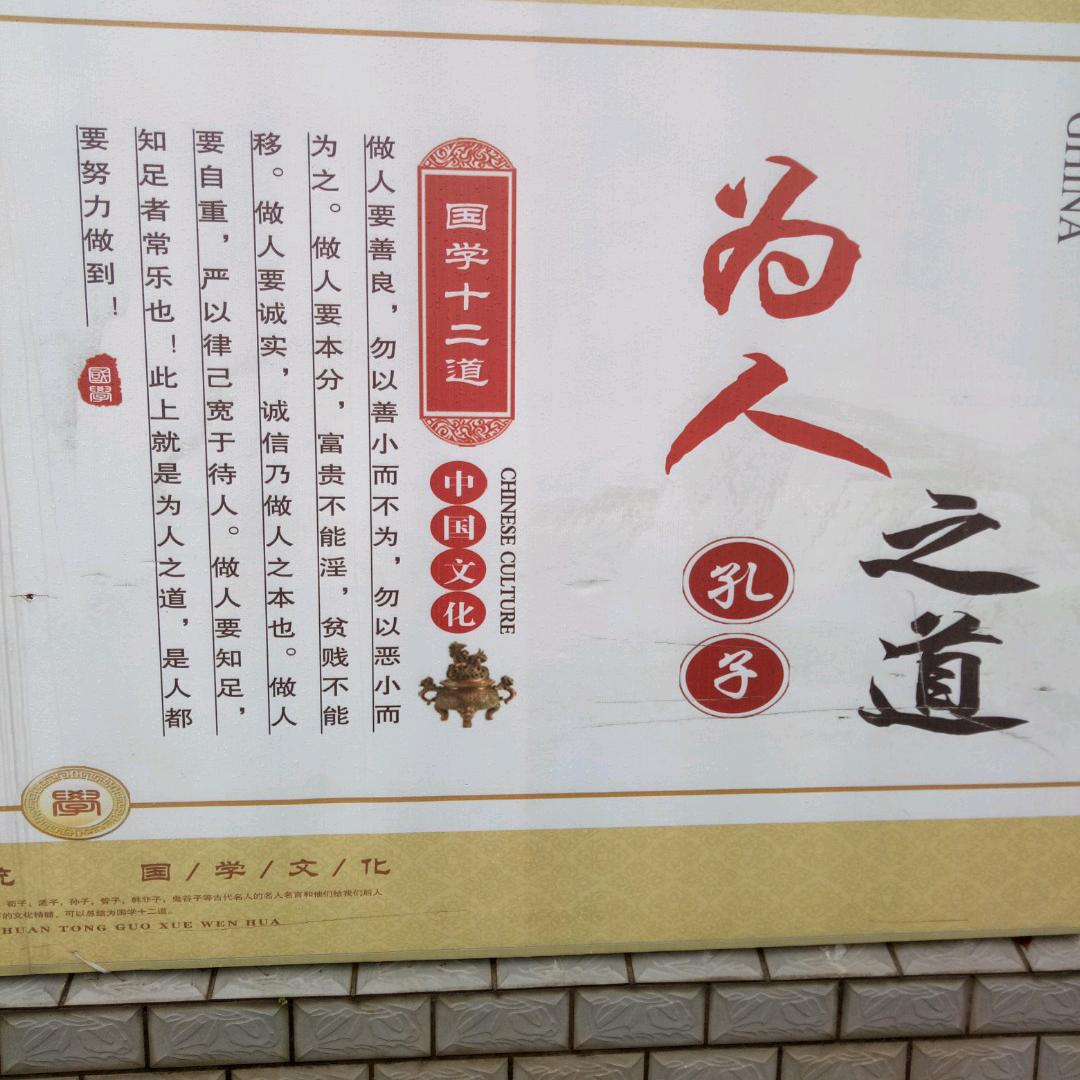 CHINA
为人
之道
孔子
国学十二道
中国文化
CHINESE CULTURE
做人要善良，勿以善小而不为，勿以恶小而
为之。做人要本分，富贵不能淫，贫贱不能
移。做人要诚实，诚信乃做人之本也。做人
要自重，严以律己宽于待人。做人要知足，
知足者常乐也！此上就是为人之道，是人都
要努力做到！
國學
學
国/学/文/化
荀子，孟子，孙子，管子，韩非子，鬼谷子等古代名人的名人名言和他们给我们后人
的文化精髓，可以总结为国学十二道。
HUAN TONG GUO XUE WEN HUA